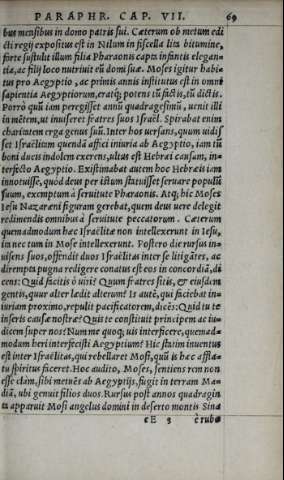 PARAPHR. CAP. VII. 69
bus mensibus in domo patris sui. Cæterum ob metum edi
cti regij expositus est in Nilum in fiscella lita bitumine,
forte sustulit illum filia Pharaonis capta infantis elegan-
tia, ac filij loco nutriuit eū domi suæ. Moses igitur habi-
tus pro Aegyptio, ac primis annis institutus est in omni
sapientia Aegyptiorum, eratq́; potens tū factis, tū dictis.
Porrò quū iam peregisset annū quadragesimū, uenit illi
in mētem, ut inuiseret fratres suos Israël. Spirabat enim
charitatem erga genus suū. Inter hos uersans, quum uidis
set Israëlitam quendā affici iniuria ab Aegyptio, iam tū
boni ducis indolem exerens, ultus est Hebræi causam, in-
terfecto Aegyptio. Existimabat autem hoc Hebræis iam
innotuisse, quòd deus per ictum statuisset seruare populū
suum, exemptum à seruitute Pharaonis. Atq́; hic Moses
Iesu Nazaræni figuram gerebat, quem deus uere delegit
redimendis omnibus à seruitute peccatorum. Cæterum
quemadmodum hæc Israëlitæ non intellexerunt in Iesu,
ita nec tum in Mose intellexerunt. Postero die rursus in-
uisens suos, offendit duos Israëlitas inter se litigātes, ac
dirempta pugna redigere conatus est eos in concordiā, di
cens: Quid facitis ô uiri? Quum fratres sitis, & eiusdem
gentis, quur alter lædit alterum? Is autē, qui faciebat in-
iuriam proximo, repulit pacificatorem, dicēs: Quid tu te
inseris causæ nostræ? Quis te constituit principem ac iu-
dicem super nos? Num me quoq; uis interficere, quemad-
modum heri interfecisti Aegyptium? Hic statim inuentus
est inter Israëlitas, qui rebellaret Mosi, quū is hæc afflā-
tu spiritus faceret. Hoc audito, Moses, sentiens rem non
esse clàm, sibi metuēs ab Aegyptijs, fugit in terram Ma-
diā, ubi genuit filios duos. Rursus post annos quadragin
ta apparuit Mosi angelus domini in deserto montis Sina
eE 3 è rubo